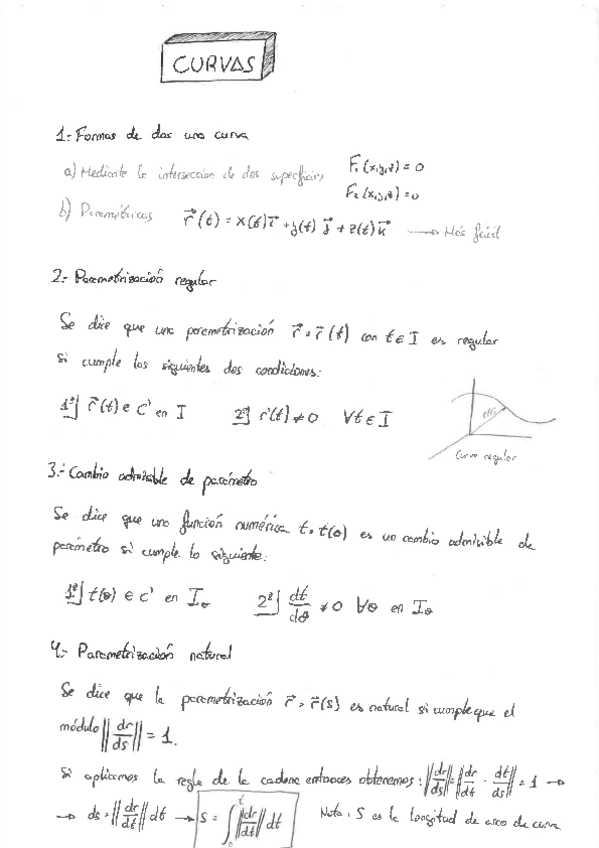 CURVAS
1.- Formas de dar una curva
a) Mediante la intersección de dos superficies F₁(x,y,z) = 0
F₂(x,y,z) = 0
b) Paramétricas r⃗(t) = x(t) i⃗ + y(t) j⃗ + z(t) k⃗ → Más fácil
2.- Parametrización regular
Se dice que una parametrización r⃗ = r⃗(t) con t ∈ I es regular
si cumple las siguientes dos condiciones:
1º] r⃗(t) ∈ C' en I 2º] r'(t) ≠ 0 ∀t ∈ I
Curva regular
3.- Cambio admisible de parámetro
Se dice que una función numérica t = t(θ) es un cambio admisible de
parámetro si cumple lo siguiente:
1º] t(θ) ∈ C' en I_θ 2º] dt/dθ ≠ 0 ∀θ en I_θ
4.- Parametrización natural
Se dice que la parametrización r⃗ = r⃗(s) es natural si cumple que el
módulo ||dr/ds|| = 1.
Si aplicamos la regla de la cadena entonces obtenemos: ||dr/ds|| = ||dr/dt · dt/ds|| = 1 →
→ ds = ||dr/dt|| dt → S = ∫₀ᵗ ||dr/dt|| dt Nota: S es la longitud de arco de curva